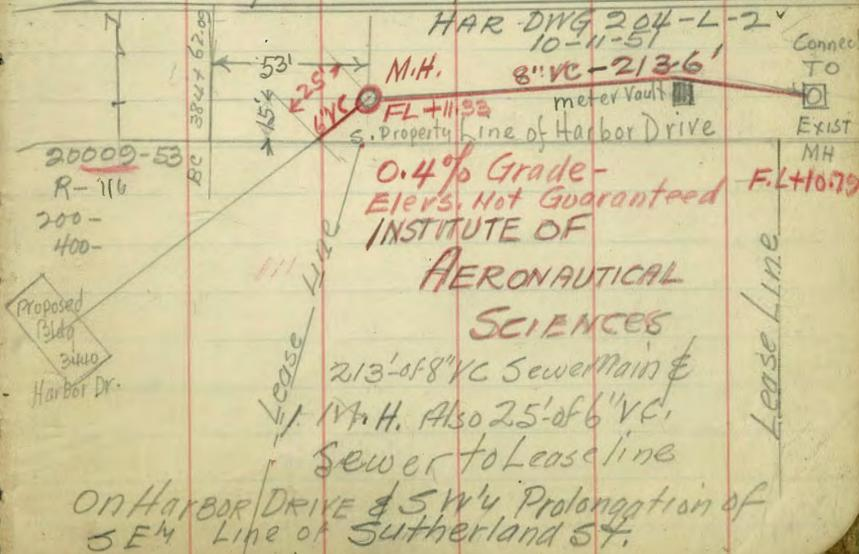 HAR DWG 204-L-2
10-11-51
BC 38+47 62.09
53'
25'
15.4
6" VC
M.H.
8" VC - 213.6'
Connec
TO
EXIST
MH
F.L+10.79
FL +11.33
meter Vault
S. Property Line of Harbor Drive
20009-53
R- 116
200-
400-
0.4% Grade-
Elevs. Not Guaranteed
INSTITUTE OF
AERONAUTICAL
SCIENCES
Proposed
Bldg
3440
Harbor Dr.
Lease Line
Lease Line
213'-of 8" VC Sewer Main &
1 M.H. Also 25'-of 6" VC.
Sewer to Lease line
On HARBOR DRIVE & S.W'y Prolongation of
S E'y Line of Sutherland St.